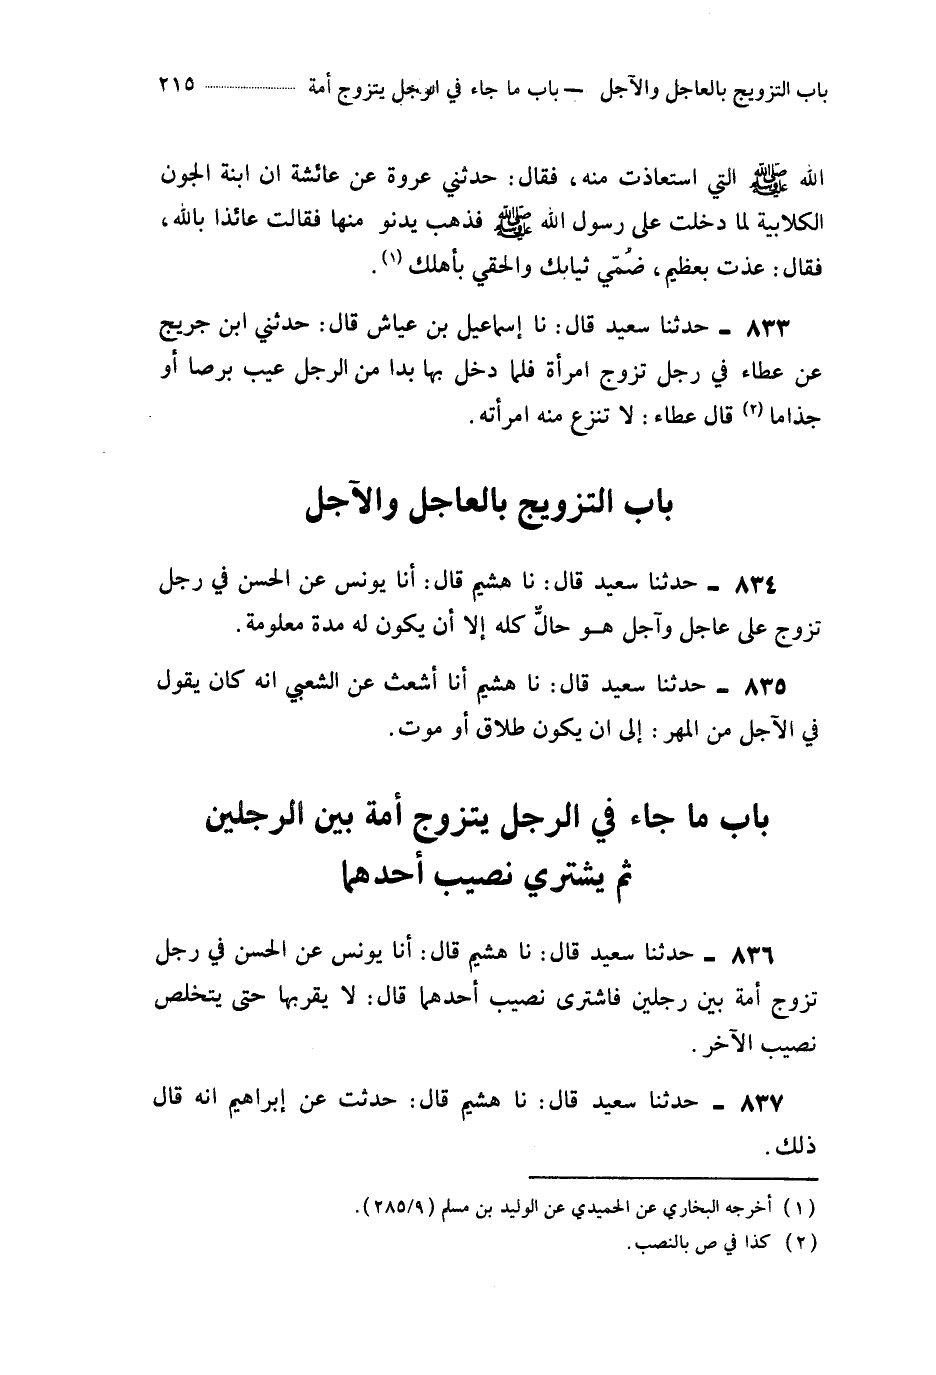 باب التزويج بالعاجل والآجل — باب ما جاء في الرجل يتزوج أمة ٢١٥
الله ﷺ التي استعاذت منه، فقال: حدثني عروة عن عائشة ان ابنة الجون
الكلابية لما دخلت على رسول الله ﷺ فذهب يدنو منها فقالت عائذا بالله،
فقال: عذت بعظيم، ضُمّي ثيابك والحقي بأهلك (١).
٨٣٣ ـ حدثنا سعيد قال: نا إسماعيل بن عياش قال: حدثني ابن جريج
عن عطاء في رجل تزوج امرأة فلما دخل بها بدا من الرجل عيب برصا أو
جذاما (٢) قال عطاء: لا تنزع منه امرأته.
باب التزويج بالعاجل والآجل
٨٣٤ ـ حدثنا سعيد قال: نا هشيم قال: أنا يونس عن الحسن في رجل
تزوج على عاجل وآجل هو حالٌّ كله إلا أن يكون له مدة معلومة.
٨٣٥ ـ حدثنا سعيد قال: نا هشيم أنا أشعث عن الشعبي انه كان يقول
في الآجل من المهر: إلى ان يكون طلاق أو موت.
باب ما جاء في الرجل يتزوج أمة بين الرجلين
ثم يشتري نصيب أحدهما
٨٣٦ ـ حدثنا سعيد قال: نا هشيم قال: أنا يونس عن الحسن في رجل
تزوج أمة بين رجلين فاشترى نصيب أحدهما قال: لا يقربها حتى يتخلص
نصيب الآخر.
٨٣٧ ـ حدثنا سعيد قال: نا هشيم قال: حدثت عن إبراهيم انه قال
ذلك.
(١) أخرجه البخاري عن الحميدي عن الوليد بن مسلم (٢٨٥/٩).
(٢) كذا في ص بالنصب.